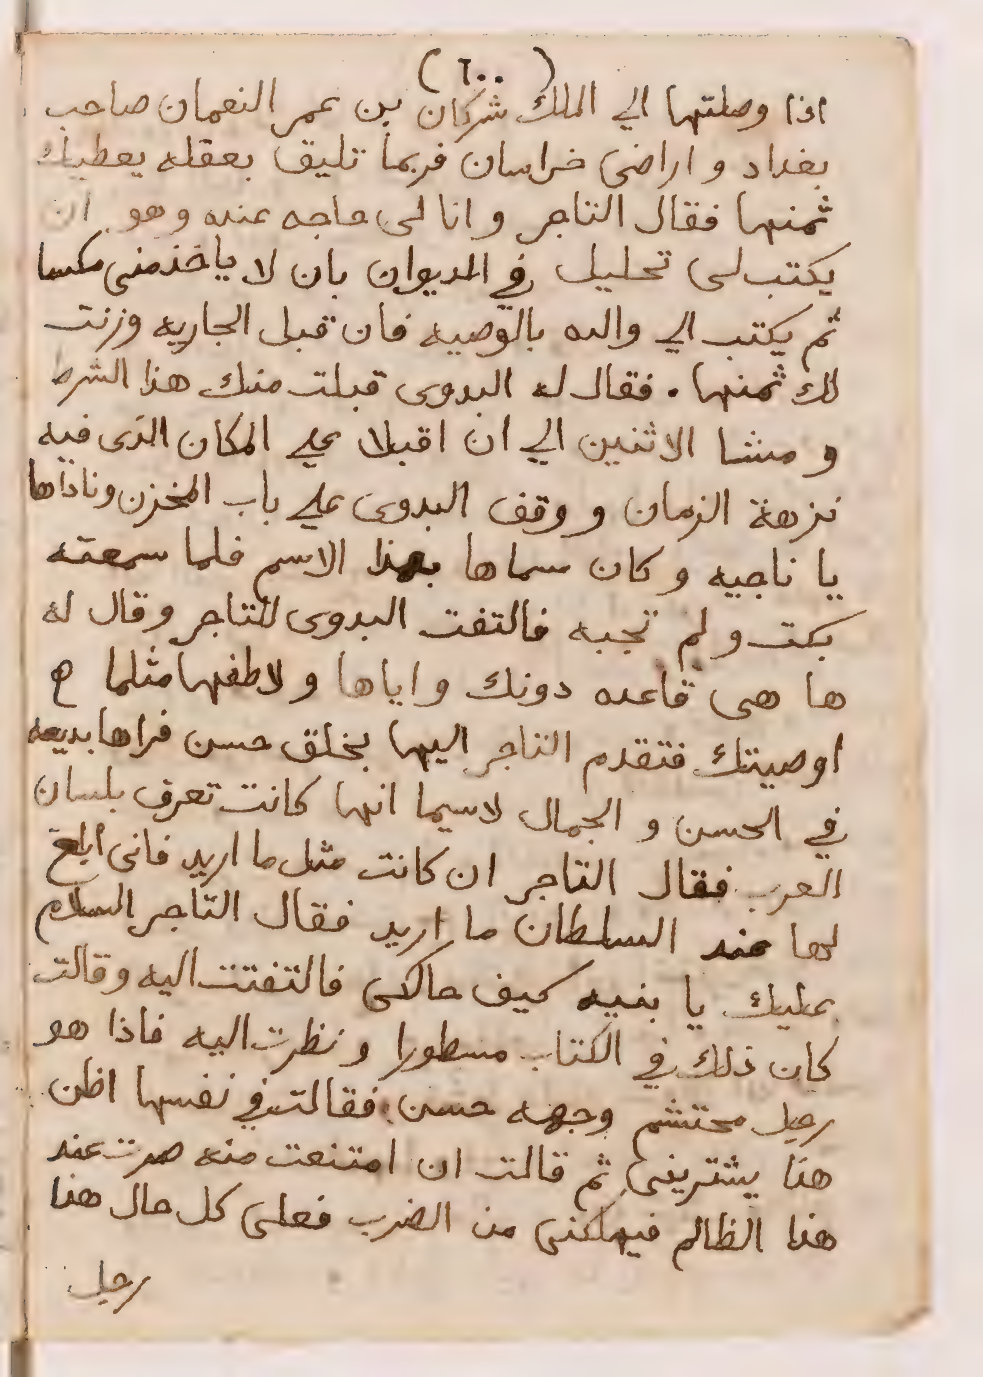 (٦٠٠)
اذا وصلتها الي الملك شركان بن عمر النعمان صاحب
بغداد و اراضى خراسان فربما تليق بعقله يعطيك
ثمنها فقال التاجر و انا لى حاجه عنده وهو ان
يكتب لى تحليل في الديوان بان لا ياخذ منى مكسا
ثم يكتب الي والده بالوصيه فان قبل الجاريه وزنت
لك ثمنها . فقال له البدوى قبلت منك هذا الشرط
و مشا الاثنين الي ان اقبلا علي المكان الذى فيه
نزهة الزمان و وقف البدوى علي باب المخزن وناداها
يا ناجيه و كان سماها بهذا الاسم فلما سمعته
بكت و لم تجبه فالتفت البدوى للتاجر وقال له
ها هى قاعده دونك و اياها و لاطفها مثلما
اوصيتك فتقدم التاجر اليها بخلق حسن فراها بديعه
في الحسن و الجمال لاسيما انها كانت تعرف بلسان
العرب فقال التاجر ان كانت مثل ما اريد فانى ابلغ
لها عند السلطان ما اريد فقال التاجر السلام
عليك يا بنيه كيف حالكى فالتفتت اليه وقالت
كان ذلك في الكتاب مسطورا و نظرت اليه فاذا هو
رجل محتشم وجهه حسن فقالت في نفسها اظن
هذا يشترينى ثم قالت ان امتنعت منه صرت عند
هذا الظالم فيهلكنى من الضرب فعلى كل حال هذا
رجل